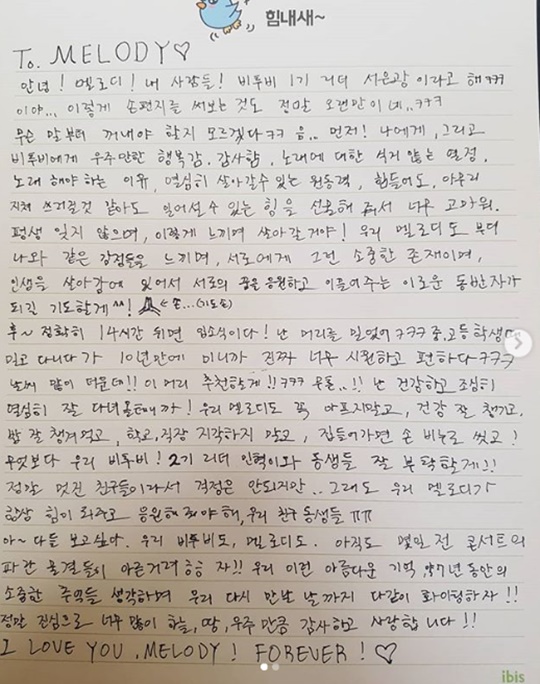 힘내새~
To. MELODY♡
안녕! 멜로디! 내 사람들! 비투비 1기 리더 서은광 이라고 해ㅋㅋ
이야... 이렇게 손편지를 써보는 것도 정말 오랜만이네..ㅋㅋㅋ
무슨 말부터 꺼내야 할지 모르겠다ㅋㅋ 음.. 먼저! 나에게, 그리고
비투비에게 우주만한 행복감, 감사함, 노래에 대한 식지 않는 열정,
노래 해야 하는 이유, 열심히 살아갈수 있는 원동력, 힘들어도, 아무리
지쳐 쓰러질것 같아도 일어설 수 있는 힘을 선물해 줘서 너무 고마워.
평생 잊지 않으며, 이렇게 느끼며 살아갈거야! 우리 멜로디도 부디
나와 같은 감정들을 느끼며, 서로에게 그런 소중한 존재이며,
인생을 살아감에 있어서 서로의 꿈을 응원하고 이끌어주는 이로운 동반자가
되길 기도할게^^! ← 손...(기도손)
후~ 정확히 14시간 뒤면 입소식이다! 난 머리를 밀었어ㅋㅋㅋ 중,고등학생때
밀고 다니다가 10년만에 미니까 진짜 너무 시원하고 편하다ㅋㅋㅋ
날씨 많이 더운데!! 이 머리 추천할게!!ㅋㅋㅋ 난 건강하고 조심히
열심히 잘 다녀올테니까! 우리 멜로디도 꼭 아프지말고, 건강 잘 챙기고,
밥 잘 챙겨먹고, 학교, 직장 지각하지 말고, 집들어가면 손 비누로 씻고!
무엇보다 우리 비투비! 2기 리더 민혁이와 동생들 잘 부탁할게!!
정말 멋진 친구들이라서 걱정은 안되지만.. 그래도 우리 멜로디가
항상 힘이 되주고 응원해줘야해, 우리 친구 동생들 ㅠㅠ
아~ 다들 보고싶다. 우리 비투비도, 멜로디도. 아직도 몇일 전 콘서트의
파란 물결들이 아른거려 흠흠 자!! 우리 이런 아름다운 기억 약7년 동안의
소중한 추억들 생각하며 우리 다시 만날 날까지 다같이 화이팅하자!!
정말 진심으로 너무 많이 하늘, 땅, 우주 만큼 감사하고 사랑합니다!!
I LOVE YOU, MELODY! FOREVER! ♡
ibis